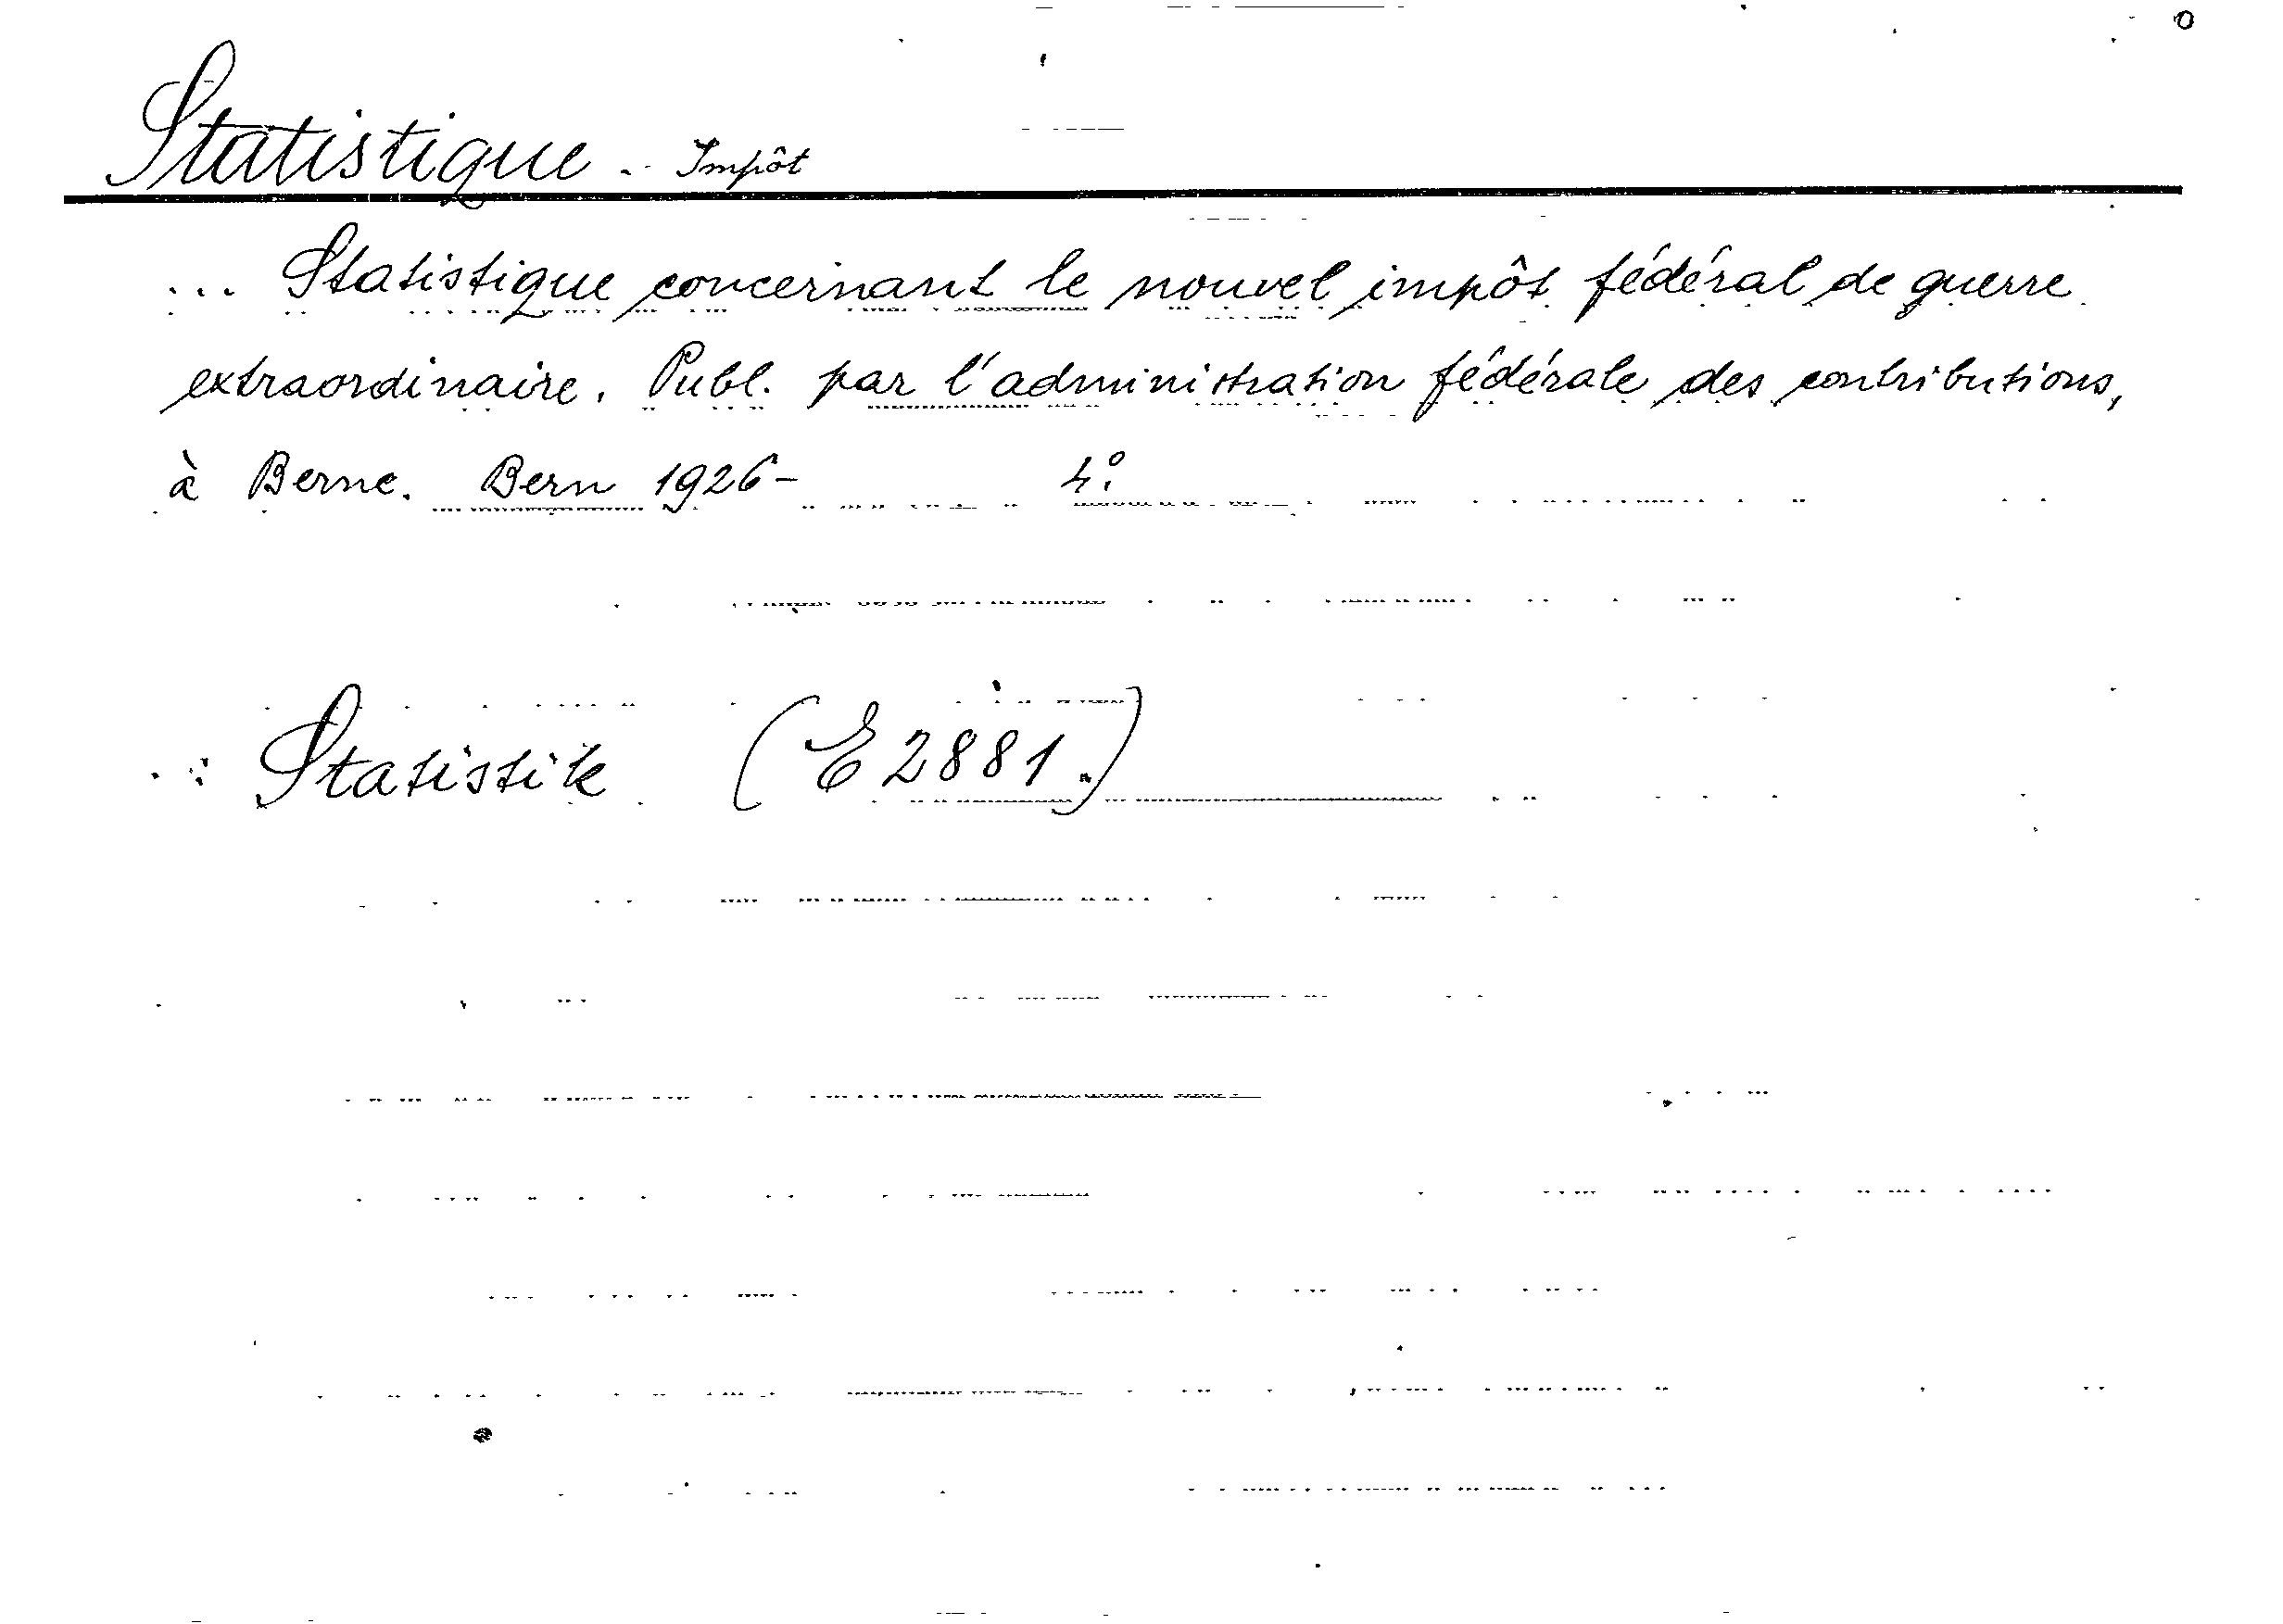 Statistique - Impôt
... Statistique concernant le nouvel impôt fédéral de guerre
extraordinaire. Publ. par l'administration fédérale des contributions,
à Berne. Bern 1926- 4°.
.: Statistik (E 2881.)